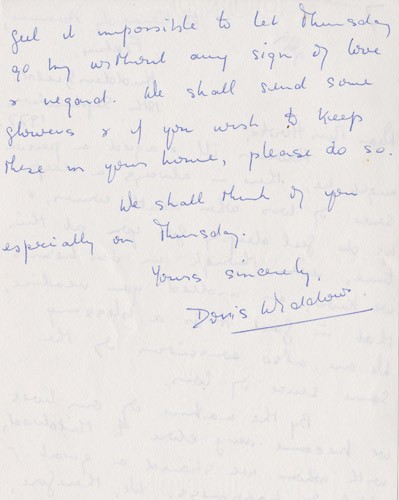 feel it impossible to let Thursday
go by without any sign of love
& regard. We shall send some
flowers & if you wish to keep
these in your home, please do so.
We shall think of you
especially on Thursday.
Yours sincerely,
Doris Widdows.